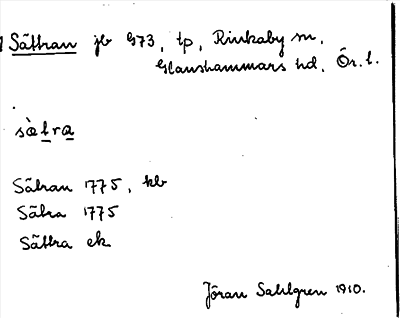 Sättran jb 973, tp, Rinkaby sn,
Glanshammars hd, Ör. l.
sà̀tra
Sätran 1775, kb
Sätra 1775
Sättra ek
Jöran Sahlgren 1910.